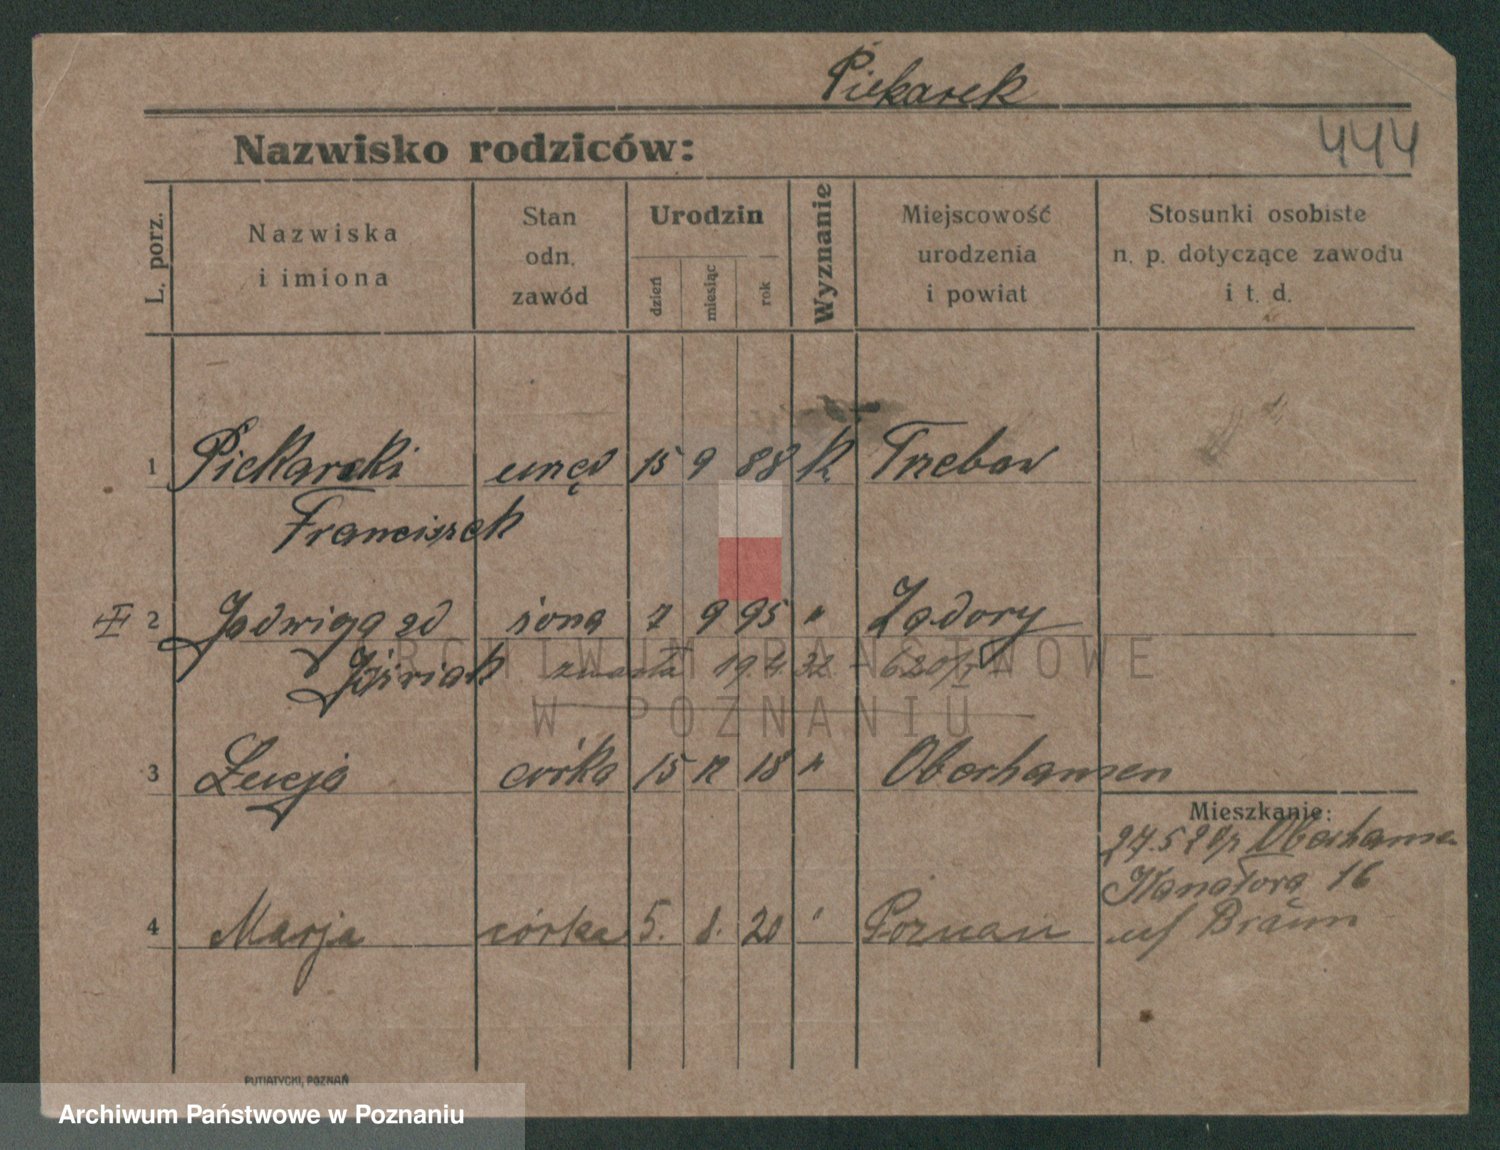 Piekarek
444
Nazwisko rodziców:
L. porz. Nazwiska i imiona Stan odn. zawód Urodzin dzień miesiąc rok Wyznanie Miejscowość urodzenia i powiat Stosunki osobiste n. p. dotyczące zawodu i t. d.
1 Piekarski urzęd 15 9 88 k Trzebaw
Franciszek
2 Jadwiga zd żona 7 9 95 " Zadory
Jóźwiak zmarła 19.4.32 - 620/
3 Łucja córka 15 12 18 " Oberhausen
Mieszkanie:
27.5 20 Oberhausen
Kanałowa 16
4 Marja córka 5. 8. 20 " Poznań
Braun
PUTIATYCKI, POZNAŃ
ARCHIWUM PAŃSTWOWE
W POZNANIU
Archiwum Państwowe w Poznaniu